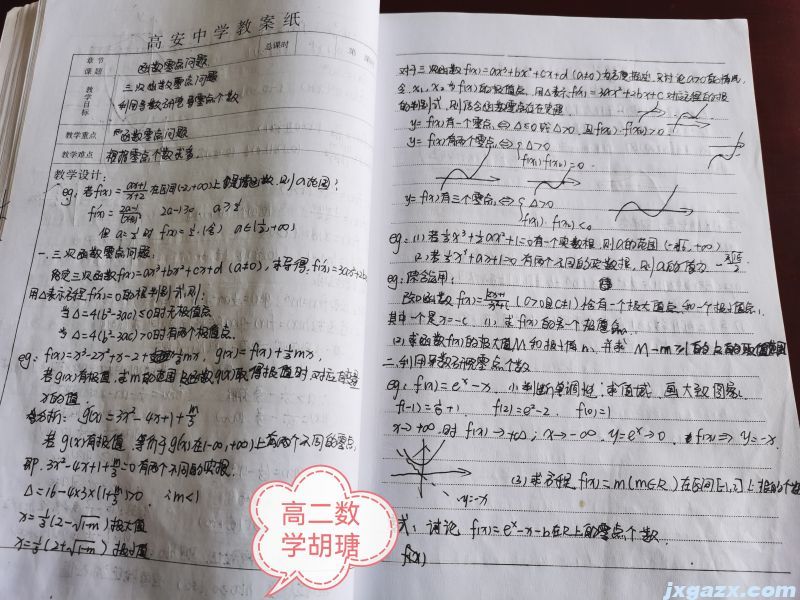 高安中学教案纸
总课时
章节
课题
函数零点问题
教学目标
三次函数零点问题
利用导数研究零点个数
教学重点
函数零点问题
教学难点
根据零点个数求参
教学设计:
eg: 若f(x)=(ax+1)/(x+2) 在区间(-2,+∞)上是增函数,则a范围?
f'(x)=
2a-1>0. a>½
a∈(½,+∞)
一.三次函数零点问题.
给定三次函数f(x)=ax³+bx²+cx+d (a≠0), 求导得: f'(x)=3ax²+2bx
用△表示方程f'(x)=0的根判别式,则:
当△=4(b²-3ac)≤0时无极值点
当△=4(b²-3ac)>0时有两个极值点.
eg: f(x)=x³-2x²+x-2
g(x)=f(x)+⅓mx,
若g(x)有极值, 求m的范围
函数g(x)取得极值时,对应
x的值
分析: g'(x)=3x²-4x+1+m/3
若g(x)有极值 等价于g'(x)在(-∞,+∞)上有两个不同的零点,
即 3x²-4x+1+m/3=0有两个不同的实根.
△=16-4×3×(1+m/3)>0 ∴m<1
x=⅓(2-√(1-m)) 极大值
x=⅓(2+√(1-m)) 极小值
对于三次函数f(x)=ax³+bx²+cx+d (a≠0)
只讨论a>0的情况,
令x₁, x₂为f(x)的极值点, 用△表示f'(x)=3ax²+2bx+c 对应方程的根
的判别式, 则
y=f(x)有一个零点⇔△≤0或△>0 且f(x₁)·f(x₂)>0
y=f(x)有两个零点⇔{△>0
f(x₁)f(x₂)=0
y=f(x)有三个零点⇔{△>0
f(x₁)·f(x₂)<0
eg: (1) 若
=0有一个实数根, 则a的范围
,+∞)
(2) 若
+ax+1=0有两个不同的实数根, 则a的值为
eg: 综合运用:
已知函数f(x)=
恰有一个极大值点和一个极小值点,
其中一个是x=-c (1) 求f(x)的另一个极值点
(2) 求函数f(x)的极大值M和极小值m, 并求 M-m≥1时
的取值范围
二.利用导数研究零点个数
eg: f(x)=e^x-x (1)判断单调性, 求值域, 画大致图象.
f(-1)=1/e+1, f(2)=e²-2, f(0)=1
x→+∞时 f(x)→+∞; x→-∞, y=e^x→0, f(x)→y=-x.
y=-x
(2) 求方程 f(x)=m(m∈R) 在区间
上根的个数
式: 讨论 f(x)=e^x-x-b在R上的零点个数.
f'(x)
高二数
学胡瑭
jxgazx.com